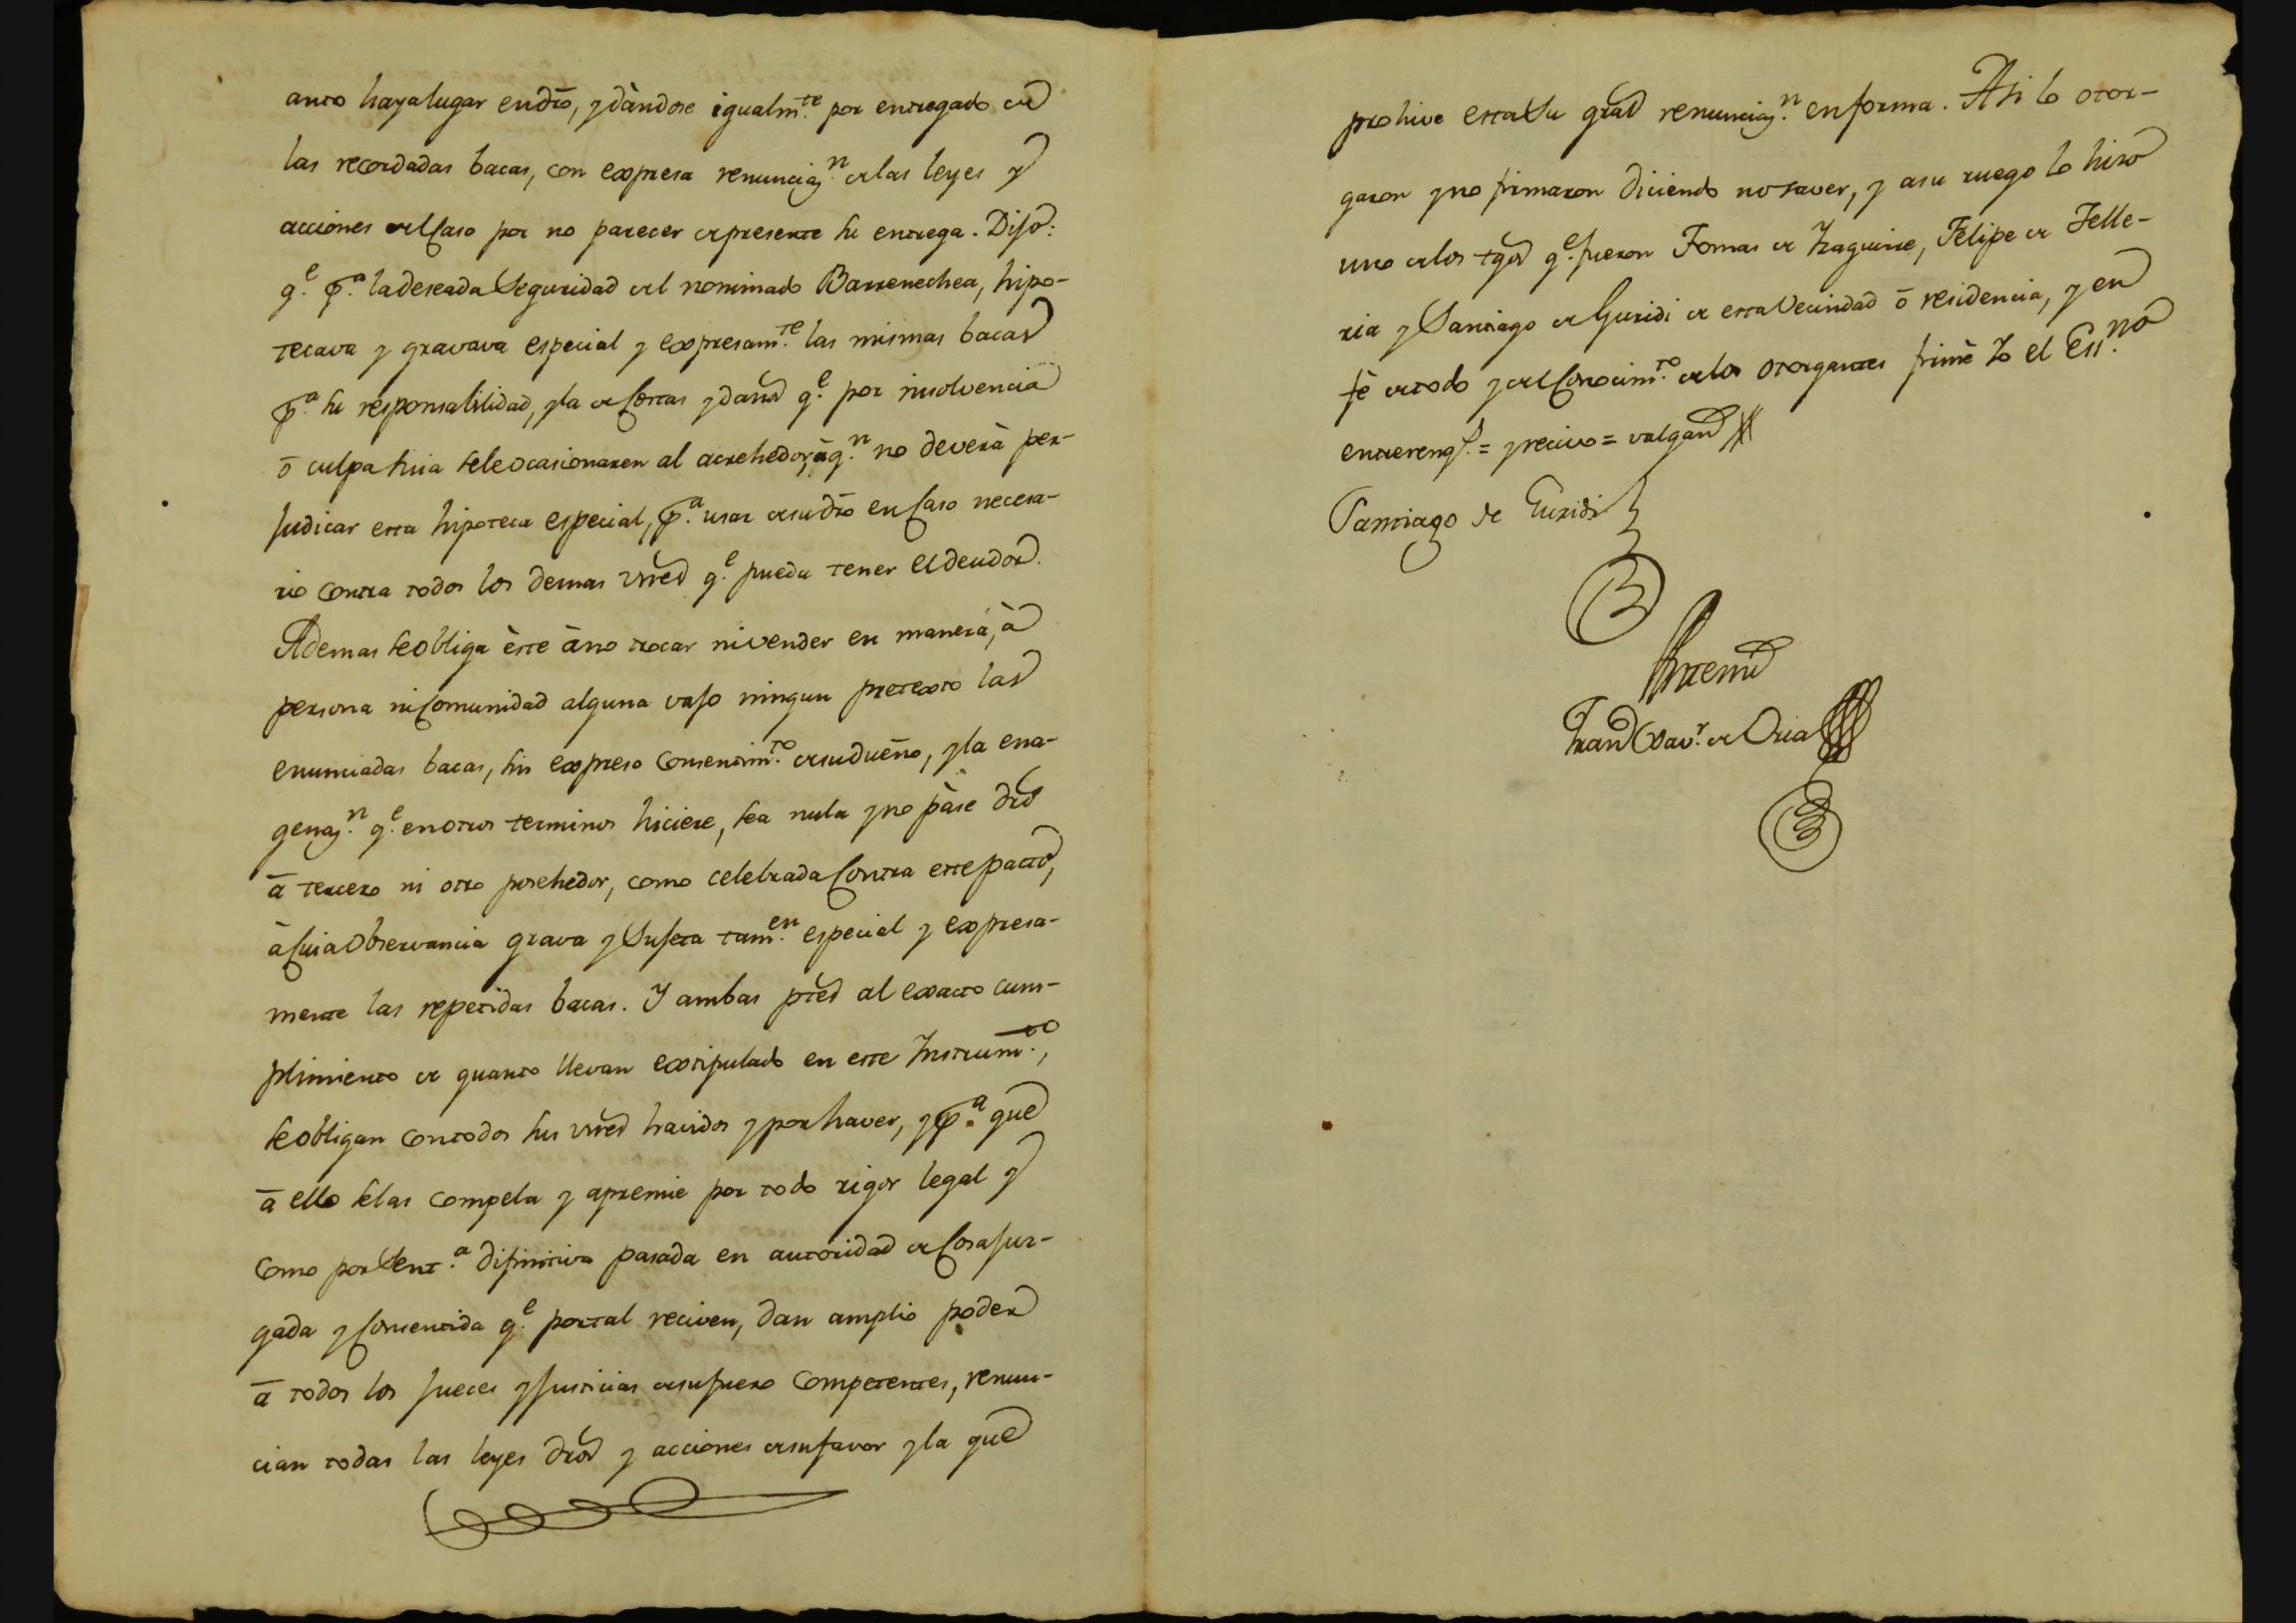 anto haya lugar en dro, y dàndose igualm.te por entregado de
las recordadas bacas, con expresa renunciaz.n de las leyes y
acciones del Caso por no parecer de presente su entrega. Dijo:
q.e p.a la deseada Seguridad del nominado Barrenechea, hipo-
tecava y gravava especial y expresam.te las mismas bacas
p.a su responsabilidad, y la de Costas y daños q.e por insolvencia
ō culpa suia sele ocasionaren al acrehedor, à q.n no deverà per-
judicar esta hipoteca especial, p.a usar de su dro en Caso necesa-
rio contra todos los demas vnes q.e pueda tener el deudor.
Ademas se obliga èste ā no trocar ni vender en manera, à
persona ni Comunidad alguna vajo ningun pretexto las
enunciadas bacas, sin expreso consentim.to de su dueño, y la ena-
genaz.n q.e en otros terminos hiciere, sea nula y no pàse dro
ā tercero ni otro posehedor, como celebrada Contra este pacto,
à Cuia Observancia grava y Sujeta tam.en especial y expresa-
mente las repetidas bacas. Y ambas ptes al exacto cum-
plimiento de quanto llevan extipulado en este Instrum.to,
se obligan con todos sus vnes havidos y por haver, y p.a que
ā ello selas compela y apremie por todo rigor legal y
como por Sent.a difinitiva pasada en autoridad de Cosa juz-
gada y Consentida q.e por tal reciven, dan amplio poder
ā todos los jueces y justicias de su fuero competentes, renun-
cian todas las leyes dros y acciones de su favor y la que
prohive esta Su gral renunciaz.n en forma. Asi lo otor-
garon y no firmaron diciendo no saver, y a su ruego lo hizo
uno de los tgos q.e fueron Tomas de Yzaguirre, Felipe de Telle-
ria y Santiago de Guridi de esta Vecindad ō residencia, y en
fè de todo y del Conocim.to de los otorgantes firmè Yo el Ess.no
entrereng.s = y recivo = valgan
Santiago de Guridi
Antemi
Fran.co Xav.r de Oria